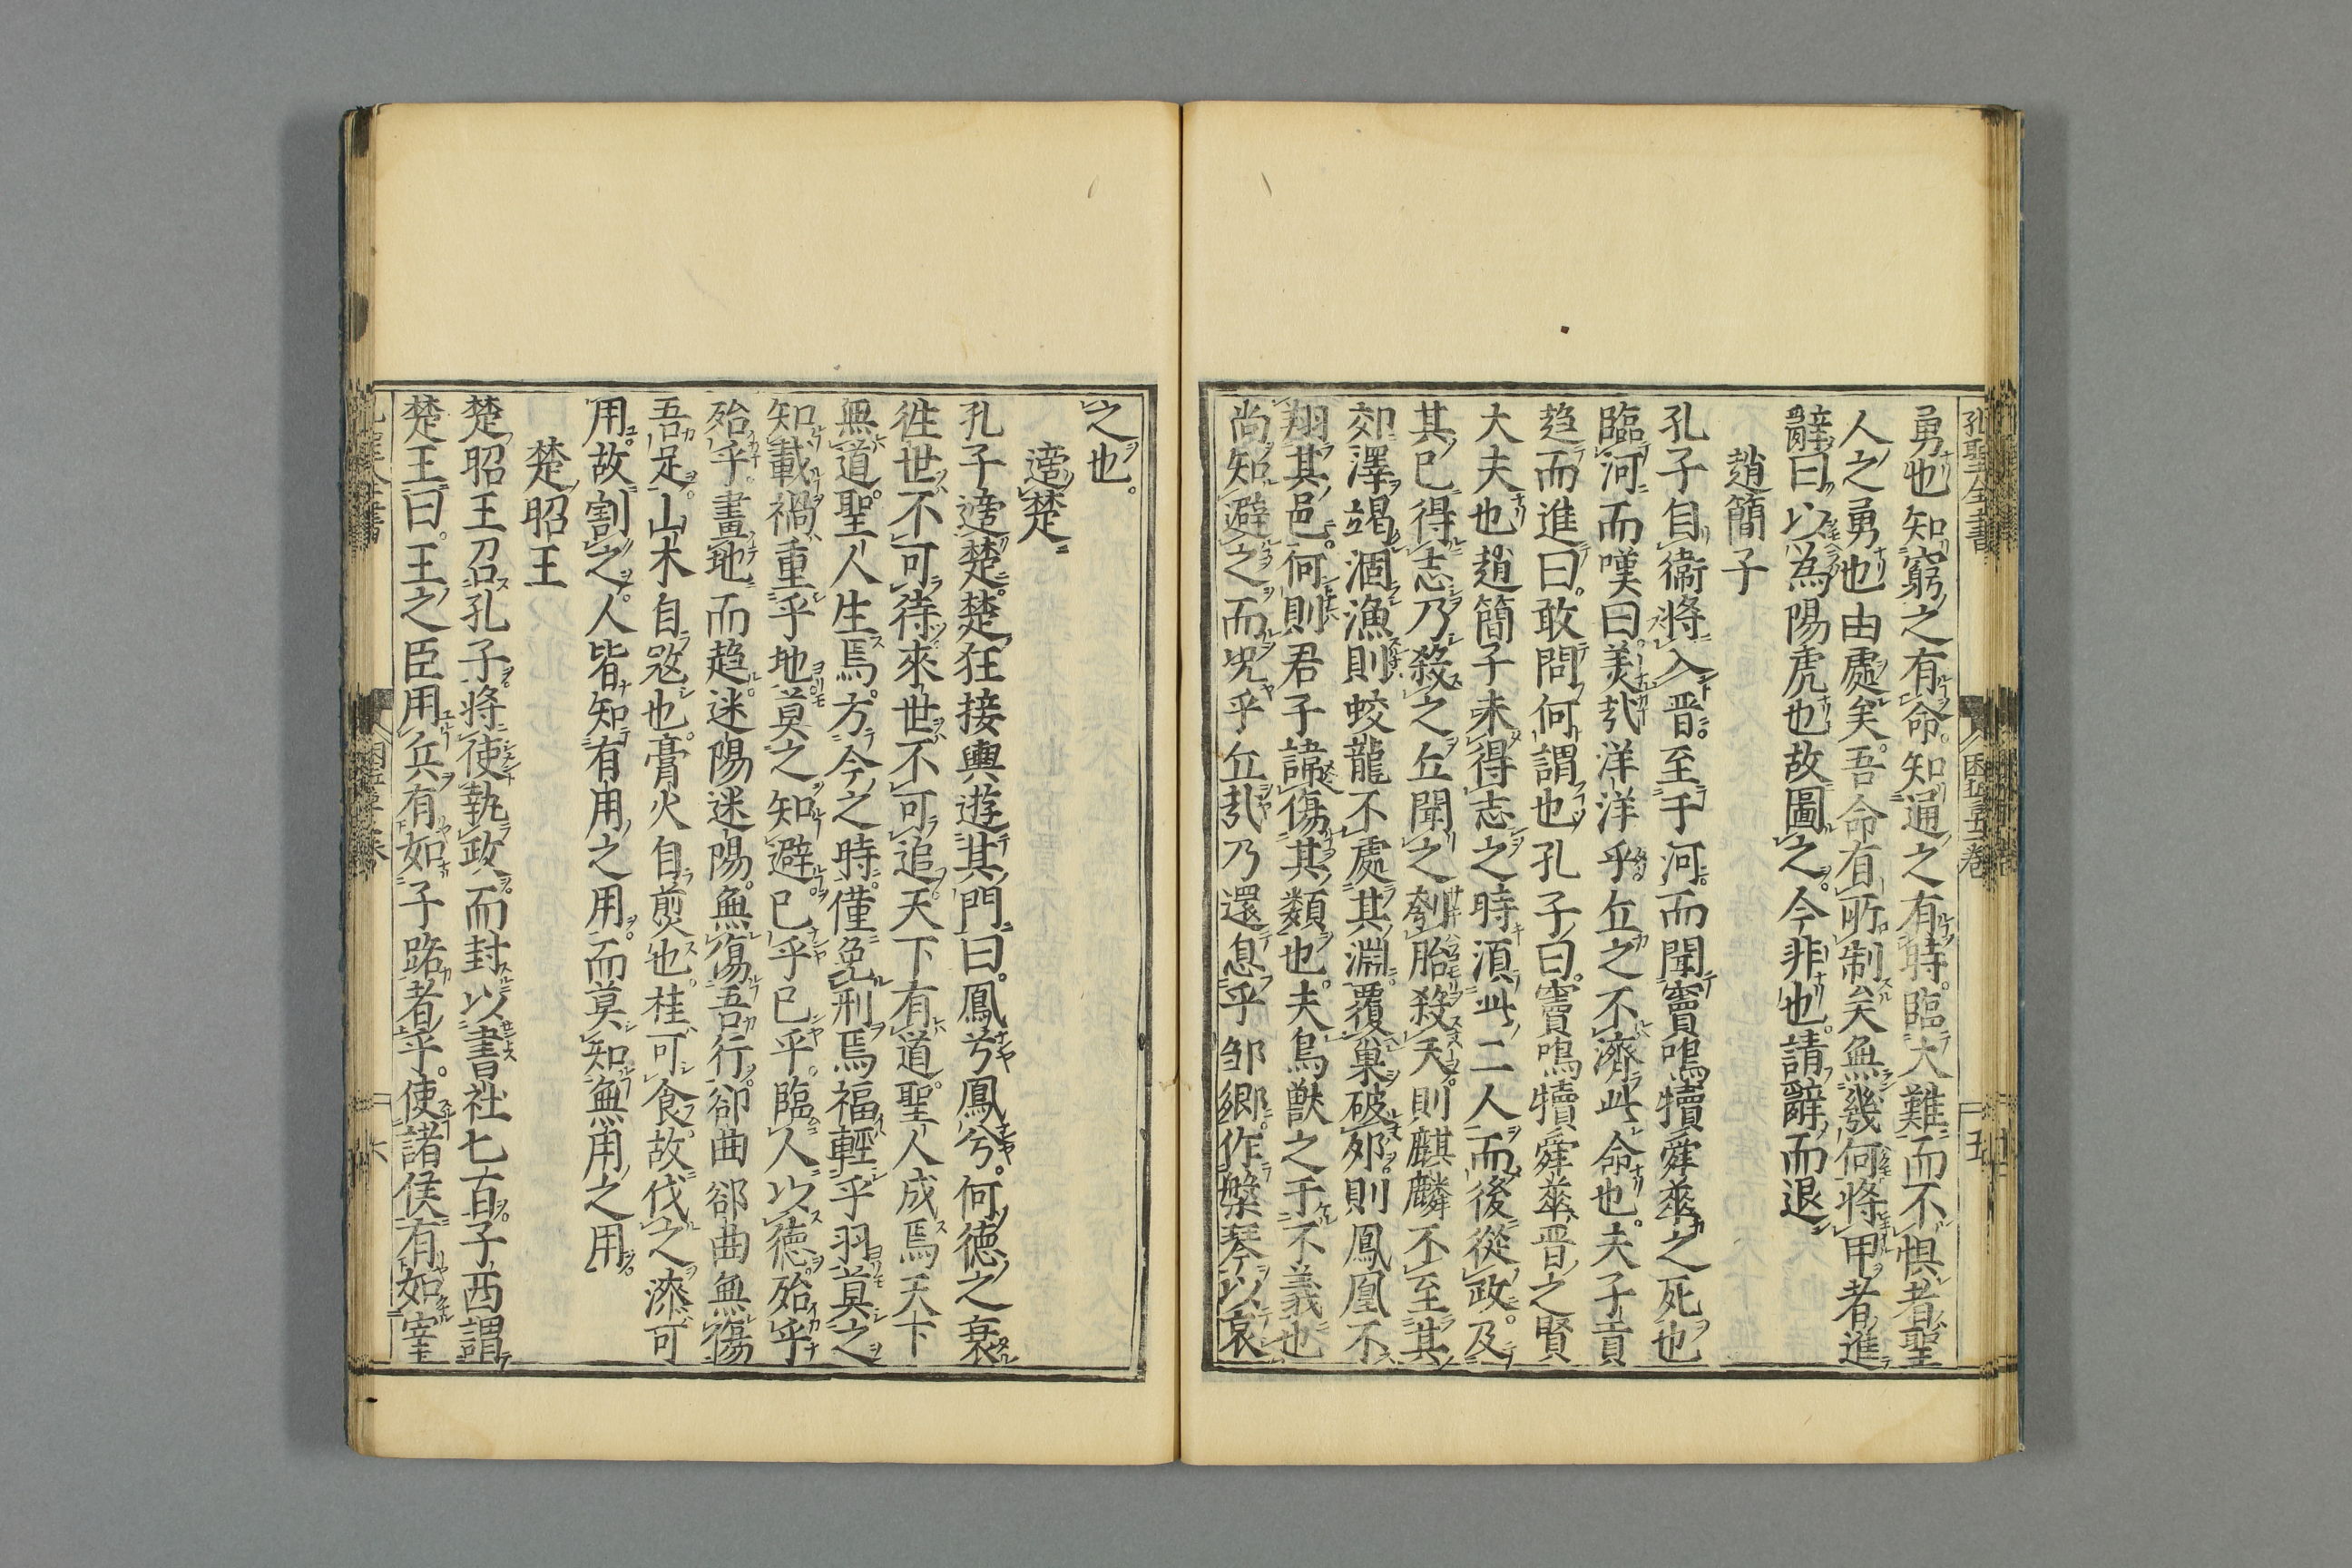 孔聖全書
五
勇也知窮之有命知通之有時臨大難而不懼者聖
人之勇也由處矣吾命有所制矣無幾何將甲者進
辭曰以為陽虎也故圖之今非也請辭而退
趙簡子
孔子自衞將入晋至于河而聞竇鳴犢舜華之死也
臨河而嘆曰美哉洋洋乎丘之不濟此命也夫子貢
趋而進曰敢問何謂也孔子曰竇鳴犢舜華晋之賢
大夫也趙簡子未得志之時湏此二人而後從政及
其已得志乃殺之丘聞之刳胎殺夭則麒麟不至其
郊澤竭涸漁則蛟龍不處其淵覆巢破夘則鳳凰不
翔其邑何則君子諱傷其類也夫鳥獣之于不義也
尚知避之而况乎丘哉乃還息乎邹鄉作槃琴以哀
之也
適楚
孔子適楚楚狂接輿遊其門曰鳳兮鳳兮何徳之衰
徃世不可待來世不可追天下有道聖人成焉天下
無道聖人生焉方今之時僅免刑焉福輕乎羽莫之
知載禍重乎地莫之知避已乎已乎臨人以徳殆乎
殆乎畫地而趋迷陽迷陽無傷吾行郤曲郤曲無傷
吾足山木自寇也膏火自煎也桂可食故伐之漆可
用故割之人皆知有用之用而莫知無用之用
楚昭王
楚昭王召孔子將使執政而封以書社七百子西謂
楚王曰王之臣用兵有如子路者乎使諸侯有如宰
六